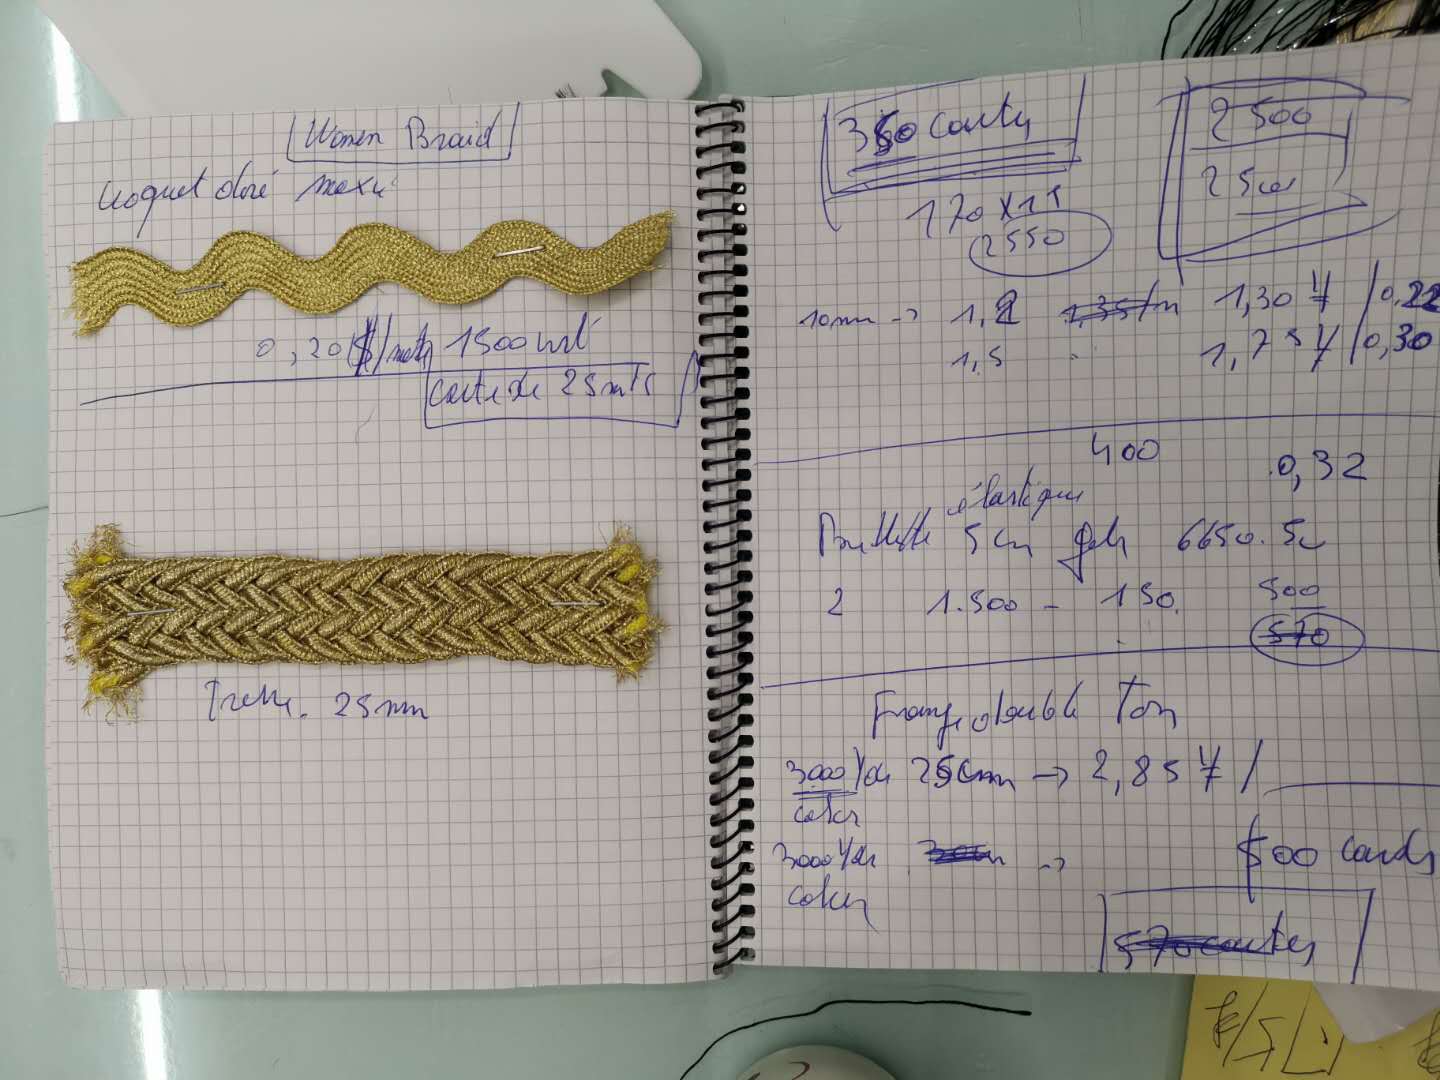 Women Braid
Croquet doré
0,20 $/ 1500 mt
carte de 25 mts
Tresse. 25mm
350 cartes
170 x 15
2550
2 500
2 500
10mm -> 1,2 1,30 ¥ / 0,22
1,5 1,75 ¥ / 0,30
400 0,32
élastique
5cm 6650.
2 1.500 - 150. 500
570
Frange double Ton
3000 Yds 25cm -> 2,85 ¥ /
color
3000 Yds -> 500 cards
color
570 cartes